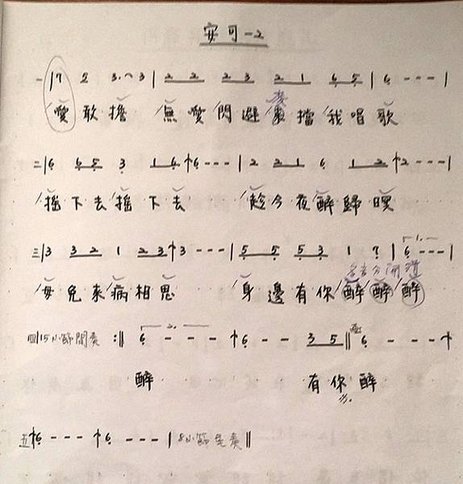 安可-2
一 | 7 5 3.⌒3 | 2 2 2 3 2 1 6 5 | 6 - - - |
愛敢擔 無愛閃避 來擋我唱歌
二 | 6 6 5 3 1 6 ↑6 - - - | 2 2 1 6 1 2 ↑2 - - - |
搖下去搖下去 趁今夜醉歸暝
三 | 3 3 2 1 2 3 ↑3 - - - | 5 5 5 3 1 7 | 6 - - - |
毋免來病相思 身邊有你醉醉醉
四 | 15小節間奏 :|| 6 - - - ↑6 - - 3 5 || 6 - - - ↑
醉 有你醉
五 ↑6 - - - ↑6 - - - | 8小節尾奏 ||